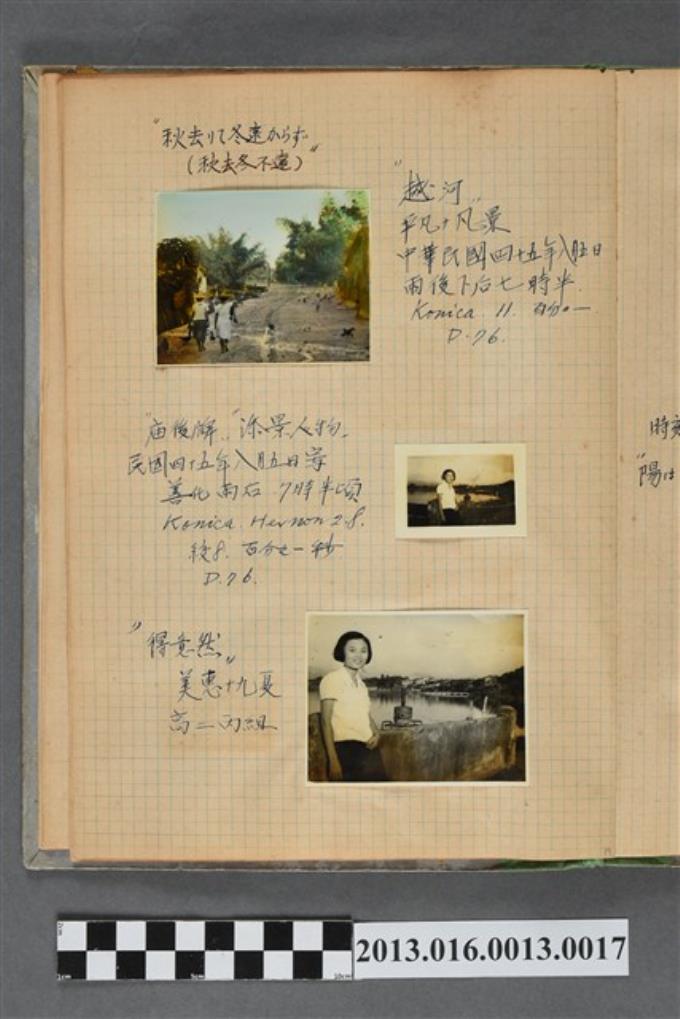 "秋去りて冬遠からず
(秋去冬不遠)"
"越河"
平凡十凡景
中華民國四十五年八月五日
雨後下后七時半.
Konica. 11. 百分一
D.76.
"庙後" 涂景人物
民國四十五年八月五日
善化 雨后 7時半頃
Konica. Hexnon 2.8.
絞8. 百分之一秒
D.76.
"得意然"
美惠十九夏
高二丙組
時刻
"陽は
2cm
1cm
5cm
10cm
2013.016.0013.0017